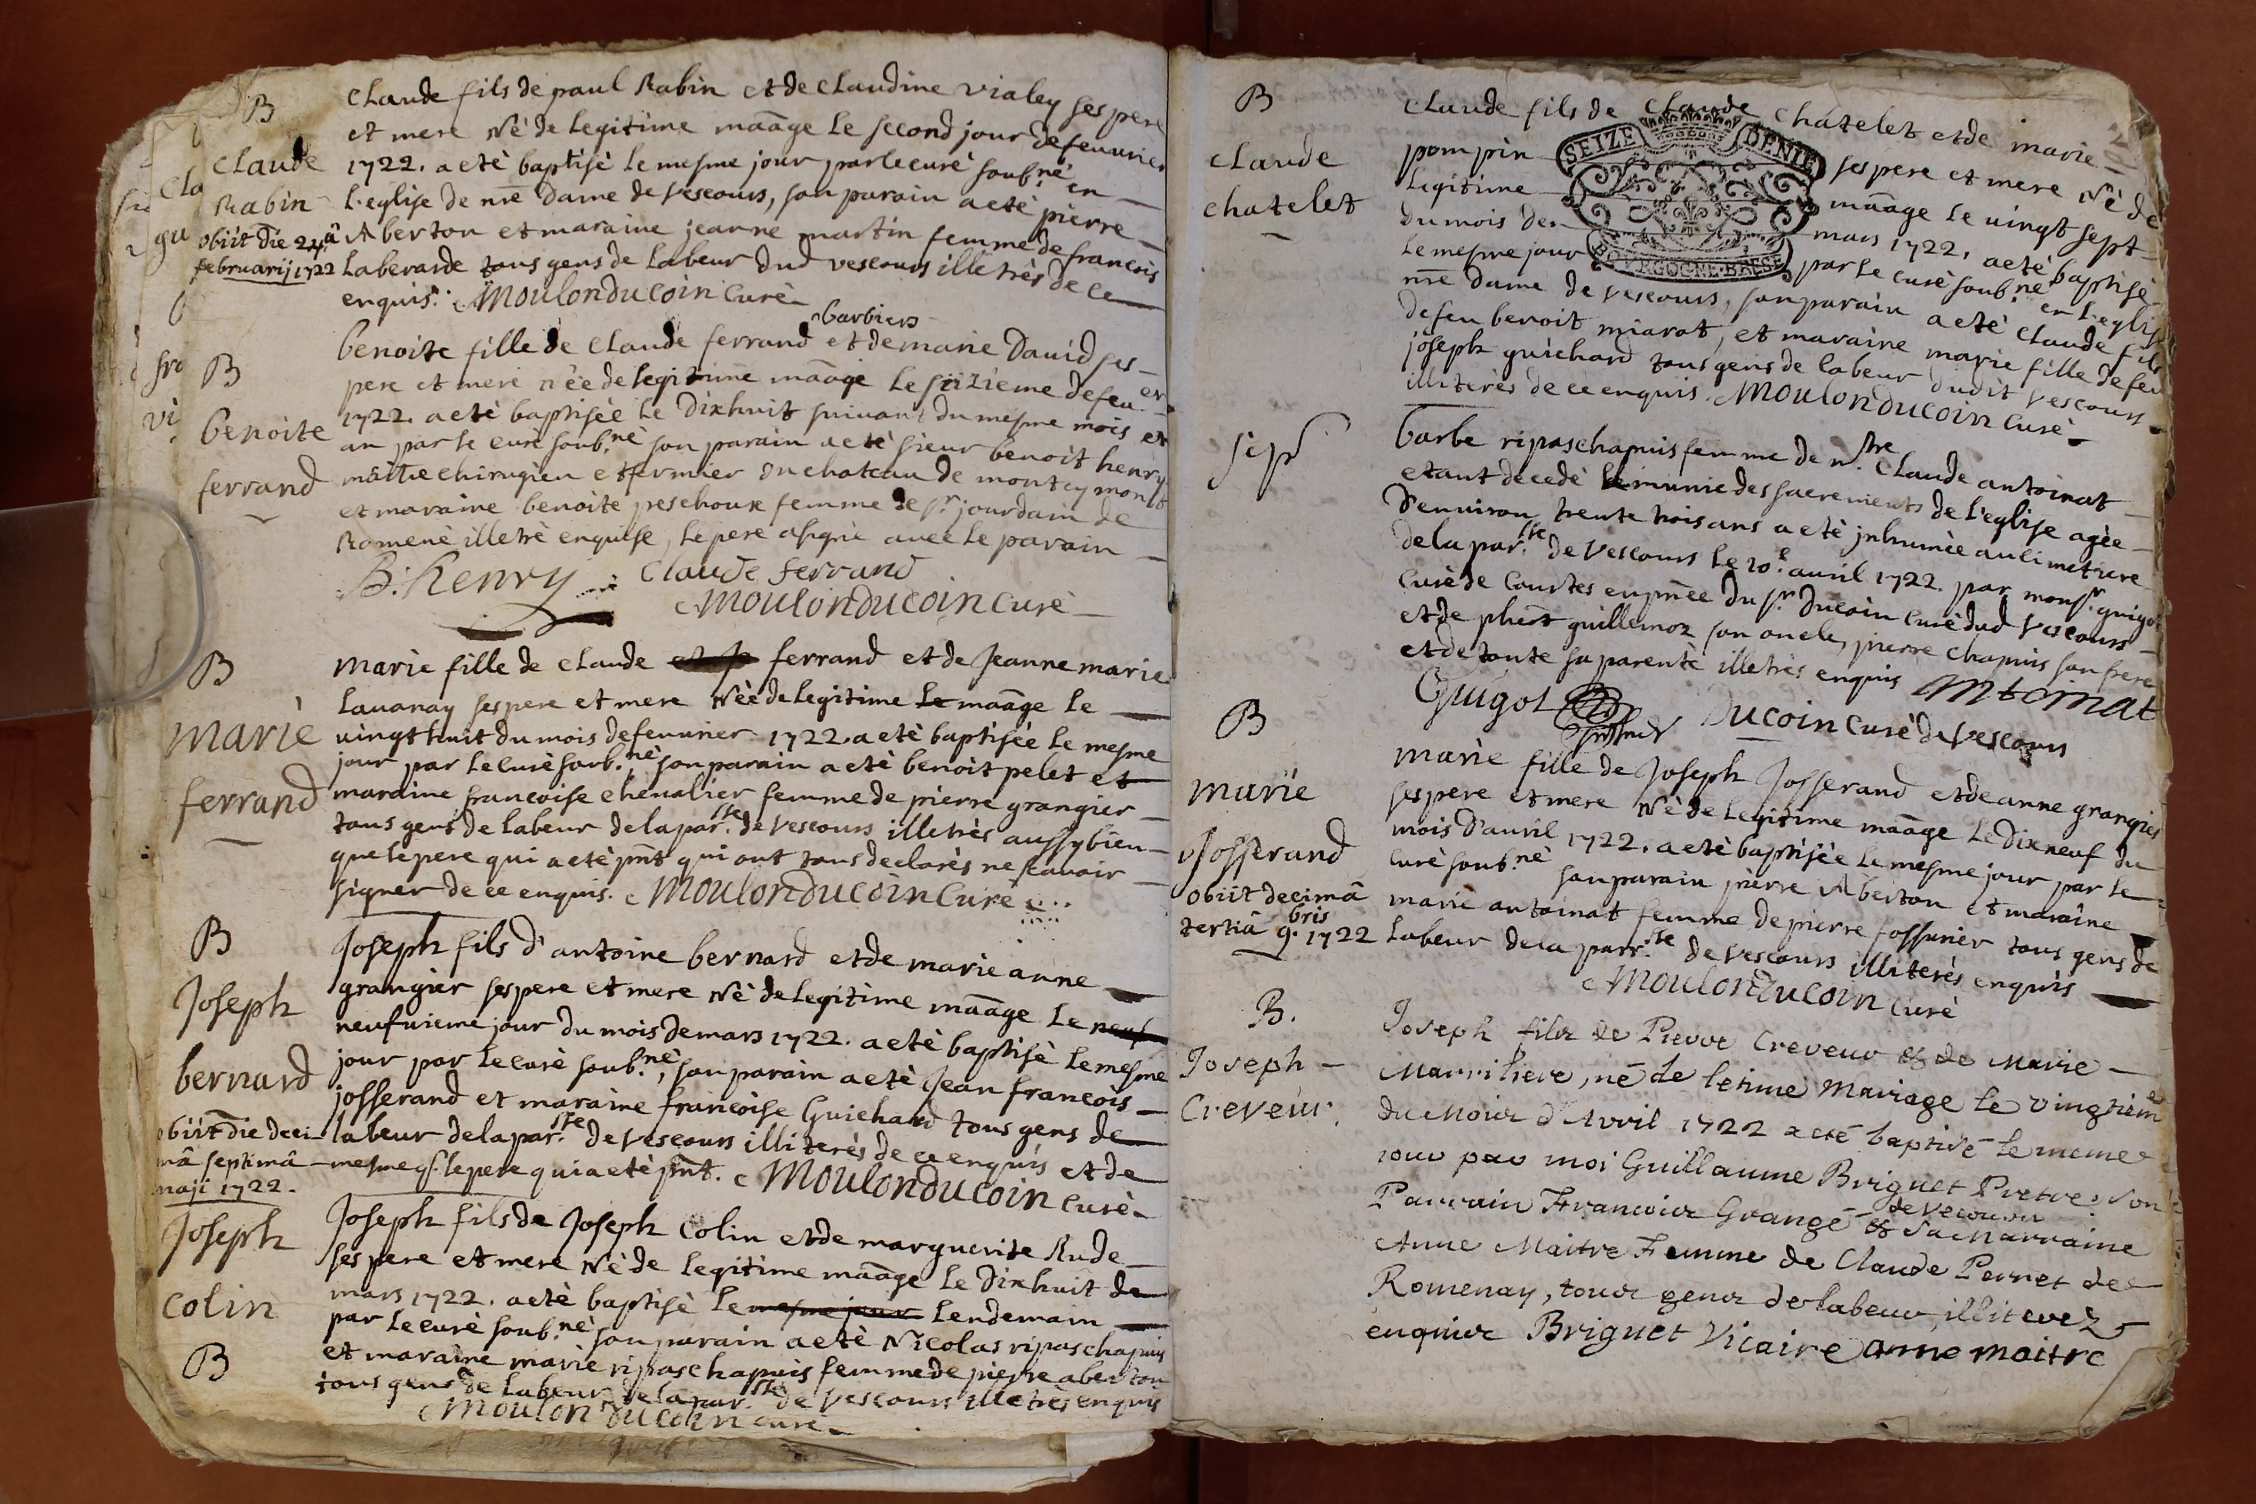 B
Claude
Rabin
obiit die 24â
februarij 1722
Claude fils de paul Rabin et de Claudine vialey ses pere
et mere Né de legitime maãge le second jour de feuurier
1722. a eté baptisé le mesme jour par le curé soub.né en
l'eglise de nre Dame de Vescours, son parain a eté pierre
Aberton et maraine jeanne martin femme de francois
Laberarde tous gens de labeur dud vescours illetrès de ce
enquis. Moulonducoin Curé
B
benoite
ferrand
barbiers
benoite fille de Claude ferrand et de marie David ses
pere et mere née de legitime maãge le seizieme de feu.er
1722. a eté baptisée le Dixhuit suiuant du mesme mois et
an par le curé soub.né son parain a eté sieur benoit henry
maitre chirugien et fermier du chateau de montcymont
et maraine benoite preschoux femme de sr. jourdain de
Romené illetré enquise, le pere a signé auec le parain
B. Henry Claude ferrand
Moulonducoin Curé
B
marie
ferrand
marie fille de Claude ferrand et de Jeanne marie
Lauanay ses pere et mere Née de legitime le maãge le
uingt huit du mois de feuurier 1722. a eté baptisée le mesme
jour par le curé soub.né son parain a eté benoit pelet et
maraine francoise cheualier femme de pierre grangier
tous gens de labeur de la par.sse de vescours illetrès aussy bien
que le pere qui a eté pnt qui ont tous declarés ne scauoir
signer de ce enquis. Moulonducoin Curé
B
Joseph
bernard
obiit die deci-
mâ septimâ
maji 1722.
Joseph fils d'antoine bernard et de marie anne
grangier ses pere et mere Né de legitime maãge le neuf
neufuieme jour du mois de mars 1722. a eté baptisé le mesme
jour par le curé soub.né, son parain a eté Jean francois
josserand et maraine francoise Guichard tous gens de
labeur de la par.sse de vescours illiterés de ce enquis et de
mesme q. le pere qui a eté pnt. Moulonducoin Curé
Joseph
Colin
B
Joseph fils de Joseph Colin et de marguerite Rude
ses pere et mere Né de legitime maãge le Dixhuit de
mars 1722. a eté baptisé le mesme jour lendemain
par le curé soub.né son parain a eté Nicolas ripaschapuis
et maraine marie ripaschapuis femme de pierre aberton
tous gens de labeur de la par.sse de vescours illetrès enquis
Moulonducoin curé
B
Claude
chatelet
SEIZE DENIE
BOVRGOGNE·BRESSE
Claude fils de Claude chatelet et de marie
pompin ses pere et mere Né de
Legitime maãge le uingt sept
du mois de mars 1722. a eté baptisé
le mesme jour par le curé soub.né en l'eglise
nre Dame de vescours, son parain a eté Claude fils
de feu benoit miarot, et maraine marie fille de feu
joseph guichard tous gens de labeur dudit vescours
illiterés de ce enquis. Moulonducoin Curé
sep
barbe ripaschapuis femme de n.stre Claude antoinat
etant decedé munie des sacrements de l'eglise agée
d'enuiron trente trois ans a eté jnhumée au cimetiere
de la par.sse de Vescours le 20.e auril 1722. par monsr. guigot
Curé de Courtes en pnce du sr. Ducoin curé dud Vescours
et de phert guillemoz son oncle, pierre chapuis son frere
et de toute sa parenté illetrés enquis
Guigot Ducoin Curé de Vescours
B
marie
Josserand
obiit decimâ
tertiâ 9.bris 1722
marie fille de Joseph Josserand et de anne grangier
ses pere et mere Né de legitime maãge le Dixneuf du
mois d'auril 1722. a eté baptisée le mesme jour par le
curé soub.né son parain pierre Aberton et maraine
marie antoinat femme de pierre fossurier tous gens de
labeur de la parr.sse de vescours illiterés enquis
Moulonducoin Curé
B.
Joseph
Creveur
Joseph fils de Pierre Creveur & de Marie
Marriliere, né de letime Mariage le vingtieme
du Mois d'Avril 1722 a eté baptisé le meme
jour par moi Guillaume Briguet Pretre: Son
Parrain Francois Grangé de vecours & Sa Marraine
Anne Maitre Femme de Claude Perret de
Romenay, tous gens de labeur, illiterez
enquis Briguet Vicaire anne maitre